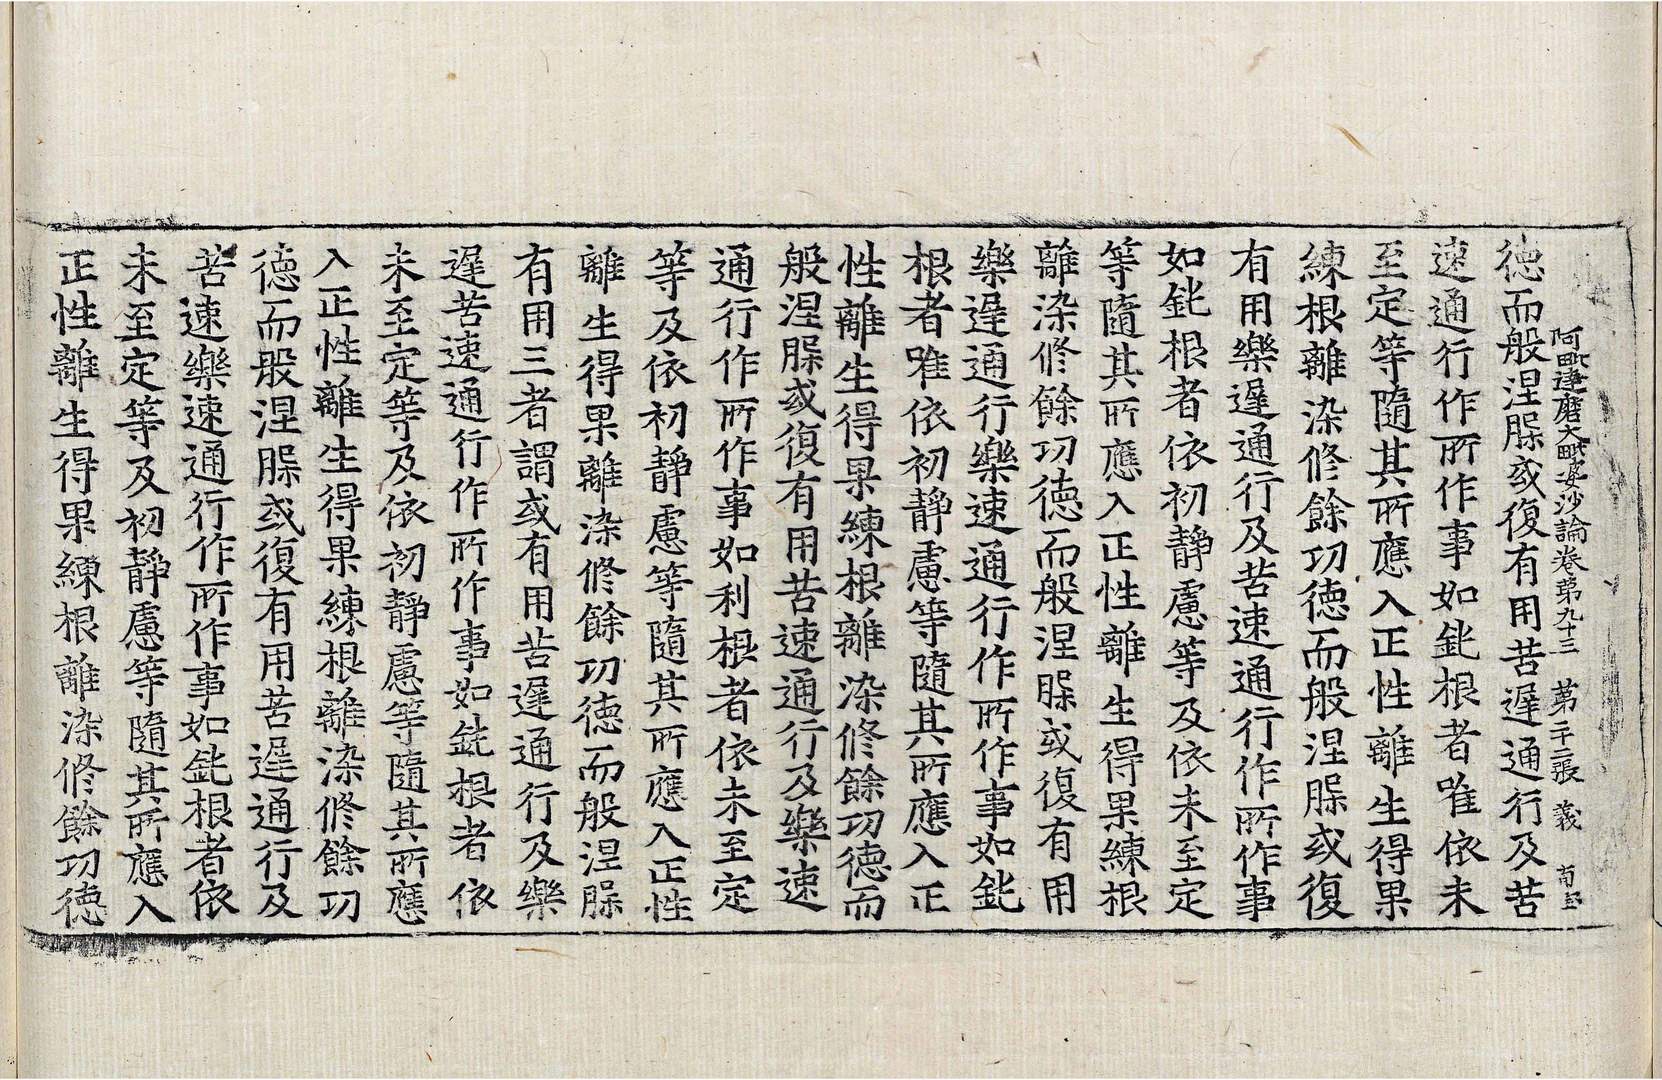 阿毗達磨大毗婆沙論卷第九十三　第二十二張　義
德而般涅腺或復有用苦遲通行及苦
速通行作所作事如鈍根者唯依未
至定等隨其所應入正性離生得果
練根離染修餘功德而般涅腺或復
有用樂遲通行及苦速通行作所作事
如鈍根者依初靜慮等及依未至定
等隨其所應入正性離生得果練根
離染修餘功德而般涅腺或復有用
樂遲通行樂速通行作所作事如鈍
根者唯依初靜慮等隨其所應入正
性離生得果練根離染修餘功德而
般涅腺或復有用苦速通行及樂速
通行作所作事如利根者依未至定
等及依初靜慮等隨其所應入正性
離生得果離染修餘功德而般涅腺
有用三者謂或有用苦遲通行及樂
遲苦速通行作所作事如鈍根者依
未至定等及依初靜慮等隨其所應
入正性離生得果練根離染修餘功
德而般涅腺或復有用苦遲通行及
苦速樂速通行作所作事如鈍根者依
未至定等及初靜慮等隨其所應入
正性離生得果練根離染修餘功德